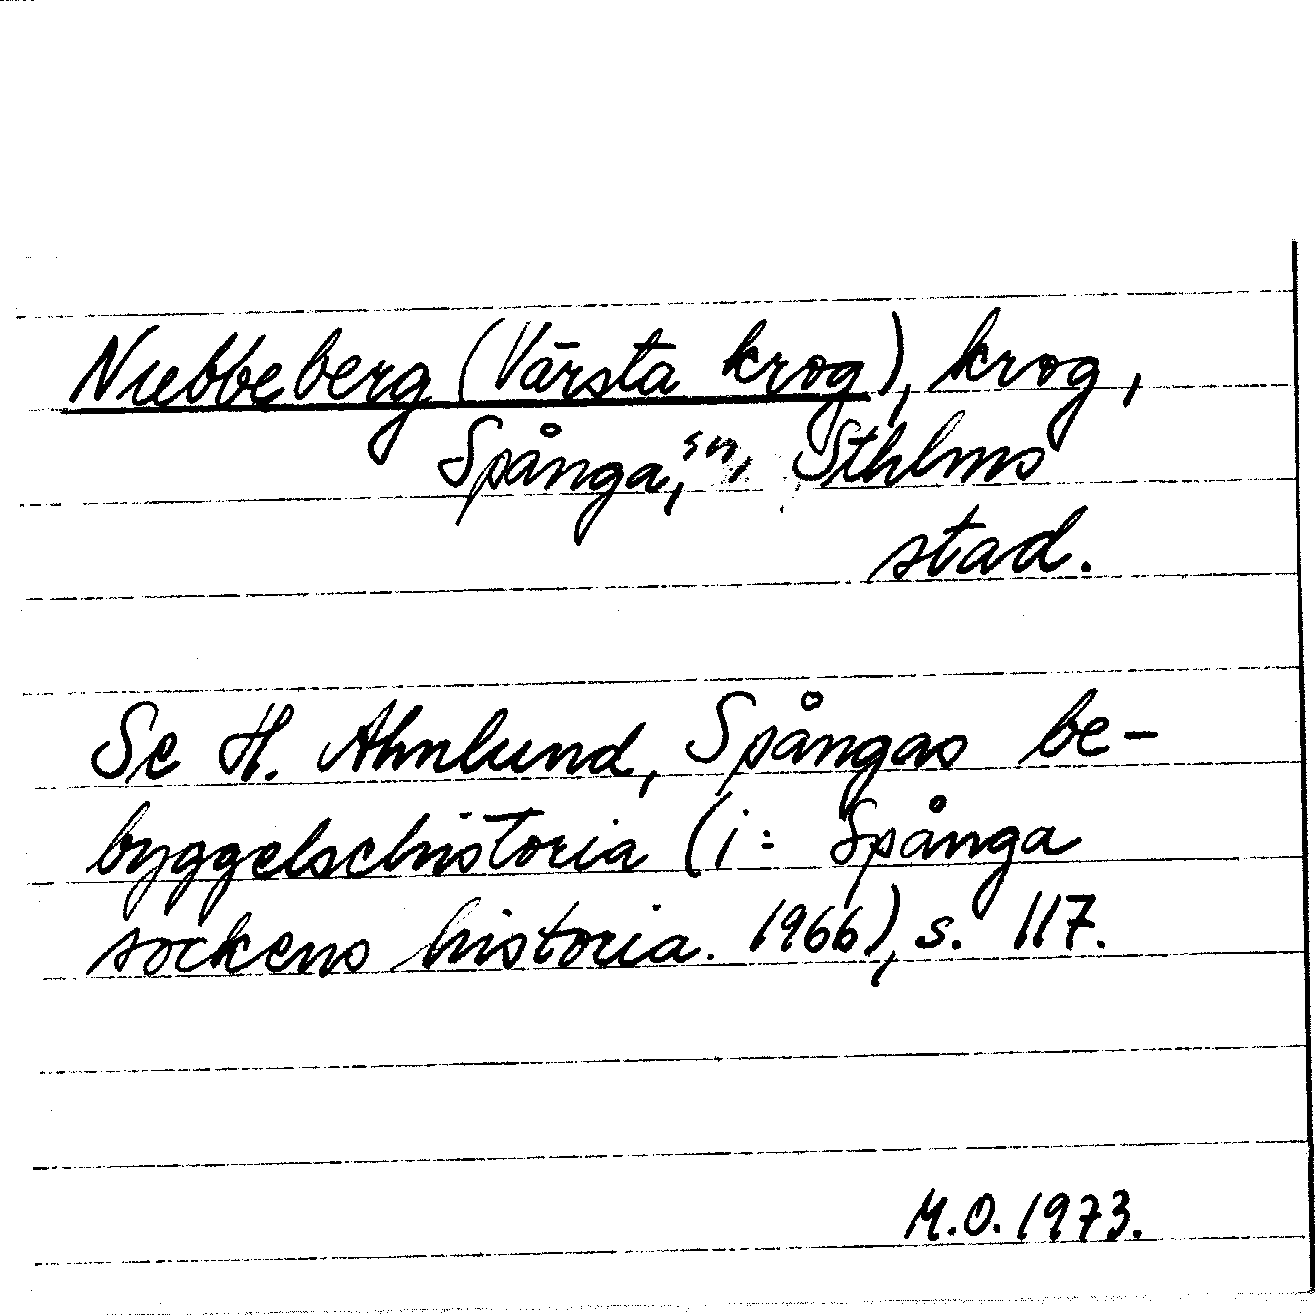 Nubbeberg (Värsta krog), krog,
Spånga, sn, Sthlms
stad.
Se H. Ahnlund, Spångas be-
byggelsehistoria (i: Spånga
sockens historia. 1966), s. 117.
M.O. 1973.